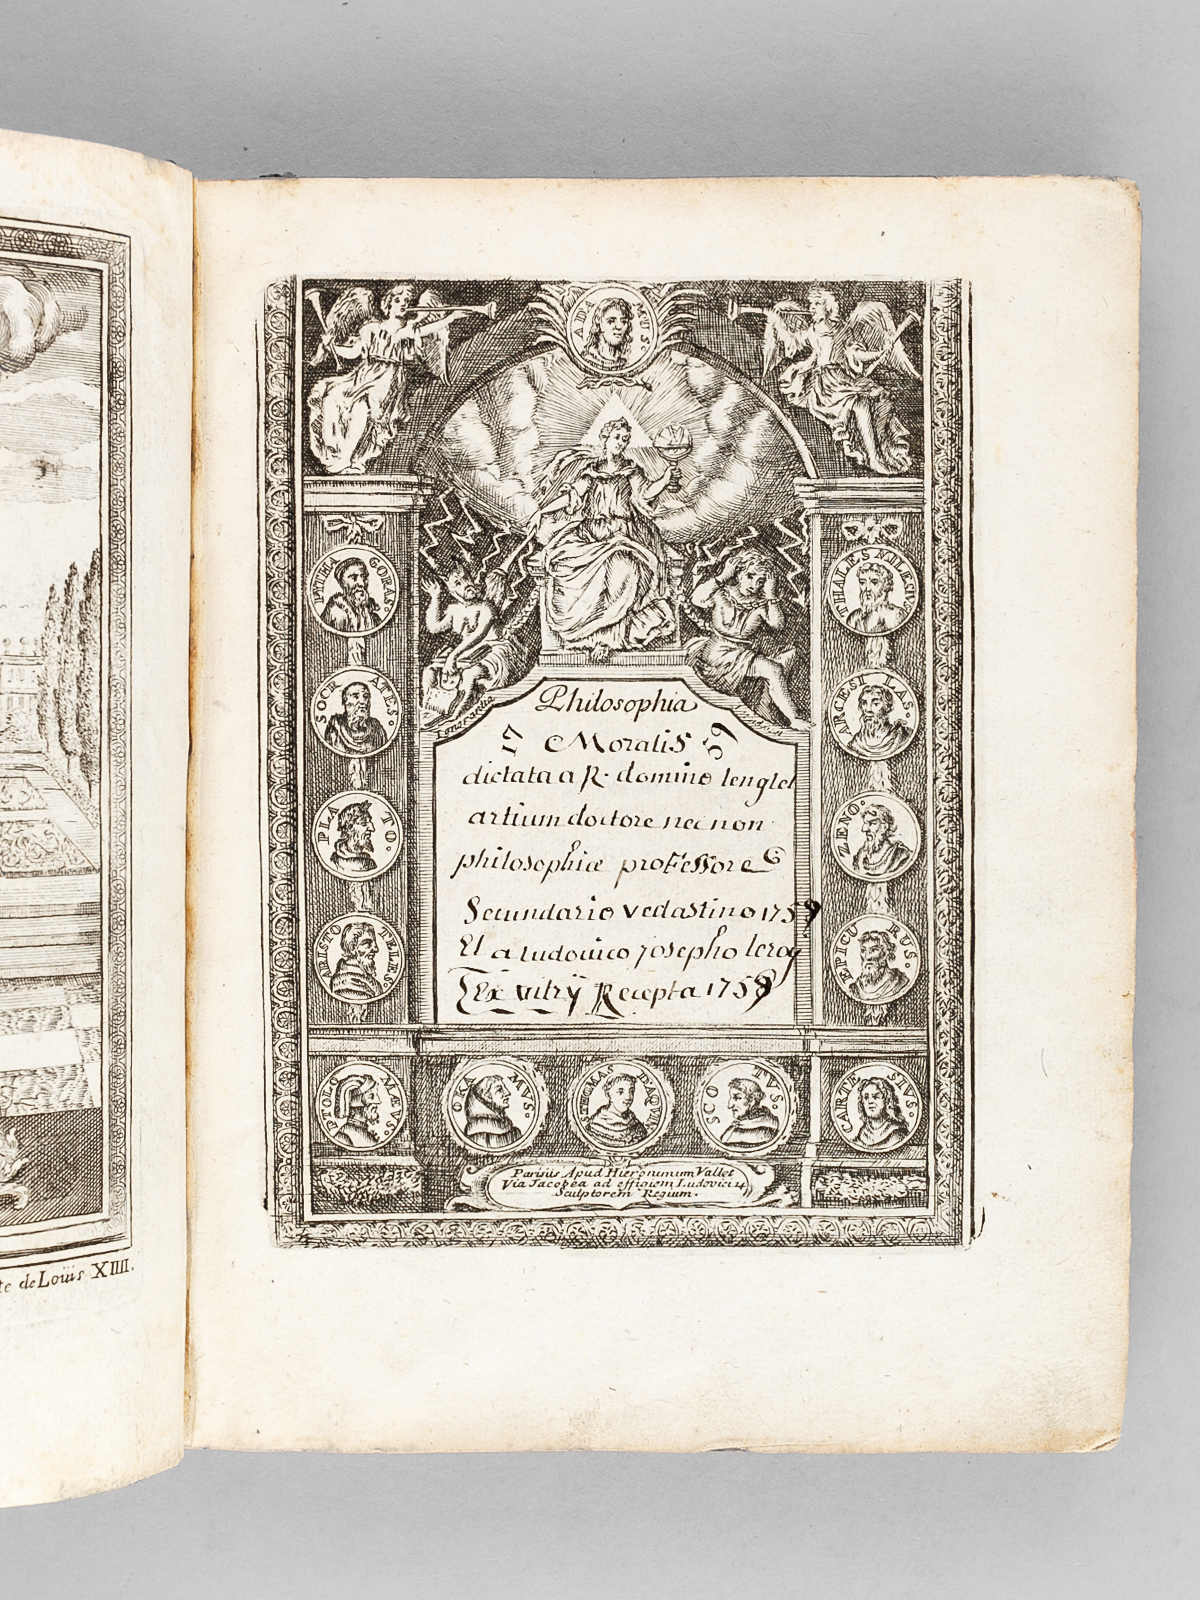 ADAMUS
PITHAGORAS.
THALES MILESIUS
SOCRATES.
ARCESILAS.
PLATO.
ZENO.
ARISTOTELES.
EPICURUS.
Philosophia
17 Moralis 59
dictata a R. domino lenglet
artium doctore nec non
philosophiæ professore
Secundario vedastino 1759
Et a Ludovico josepho leroy
Ex vitry Recepta 1758
PTOLOMÆVS.
OKAMVS.
S. THOMAS D'AQVIN
SCOTVS.
CARTESIVS.
Parisiis Apud Hieronimum Vallet
Via Jacobea ad effigiem Ludovici 14
Sculptorem Regium.
te de Loüis XIIII.